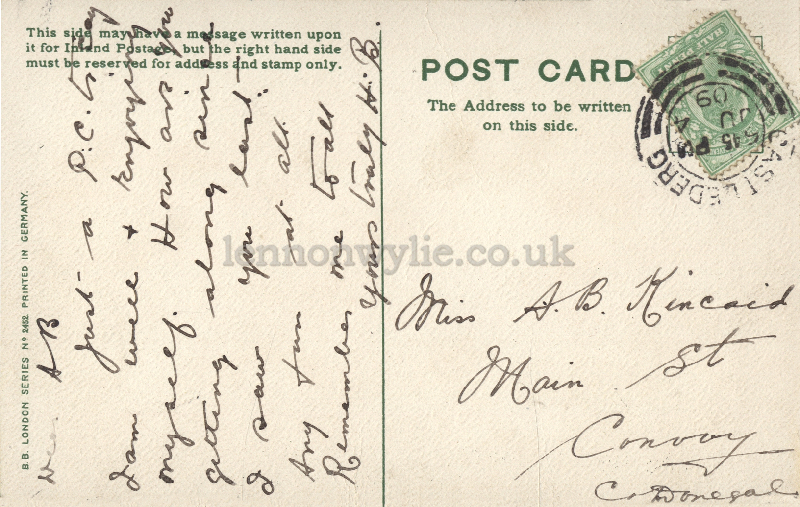 This side may have a message written upon
it for Inland Postage, but the right hand side
must be reserved for address and stamp only.
B.B. LONDON SERIES Nº 2452 PRINTED IN GERMANY.
Dear AB
Just a P.C. to say
I am well & enjoying
myself. How are you
getting along since
I saw you last
Any fun at all
Remember me to all
Yours truly H.B.
POST CARD
The Address to be written
on this side.
HALF PENNY
CASTLEDERG
5.45 PM
JU
09
Miss A.B. Kincaid
Main St
Convoy
Co Donegal
lennonwylie.co.uk